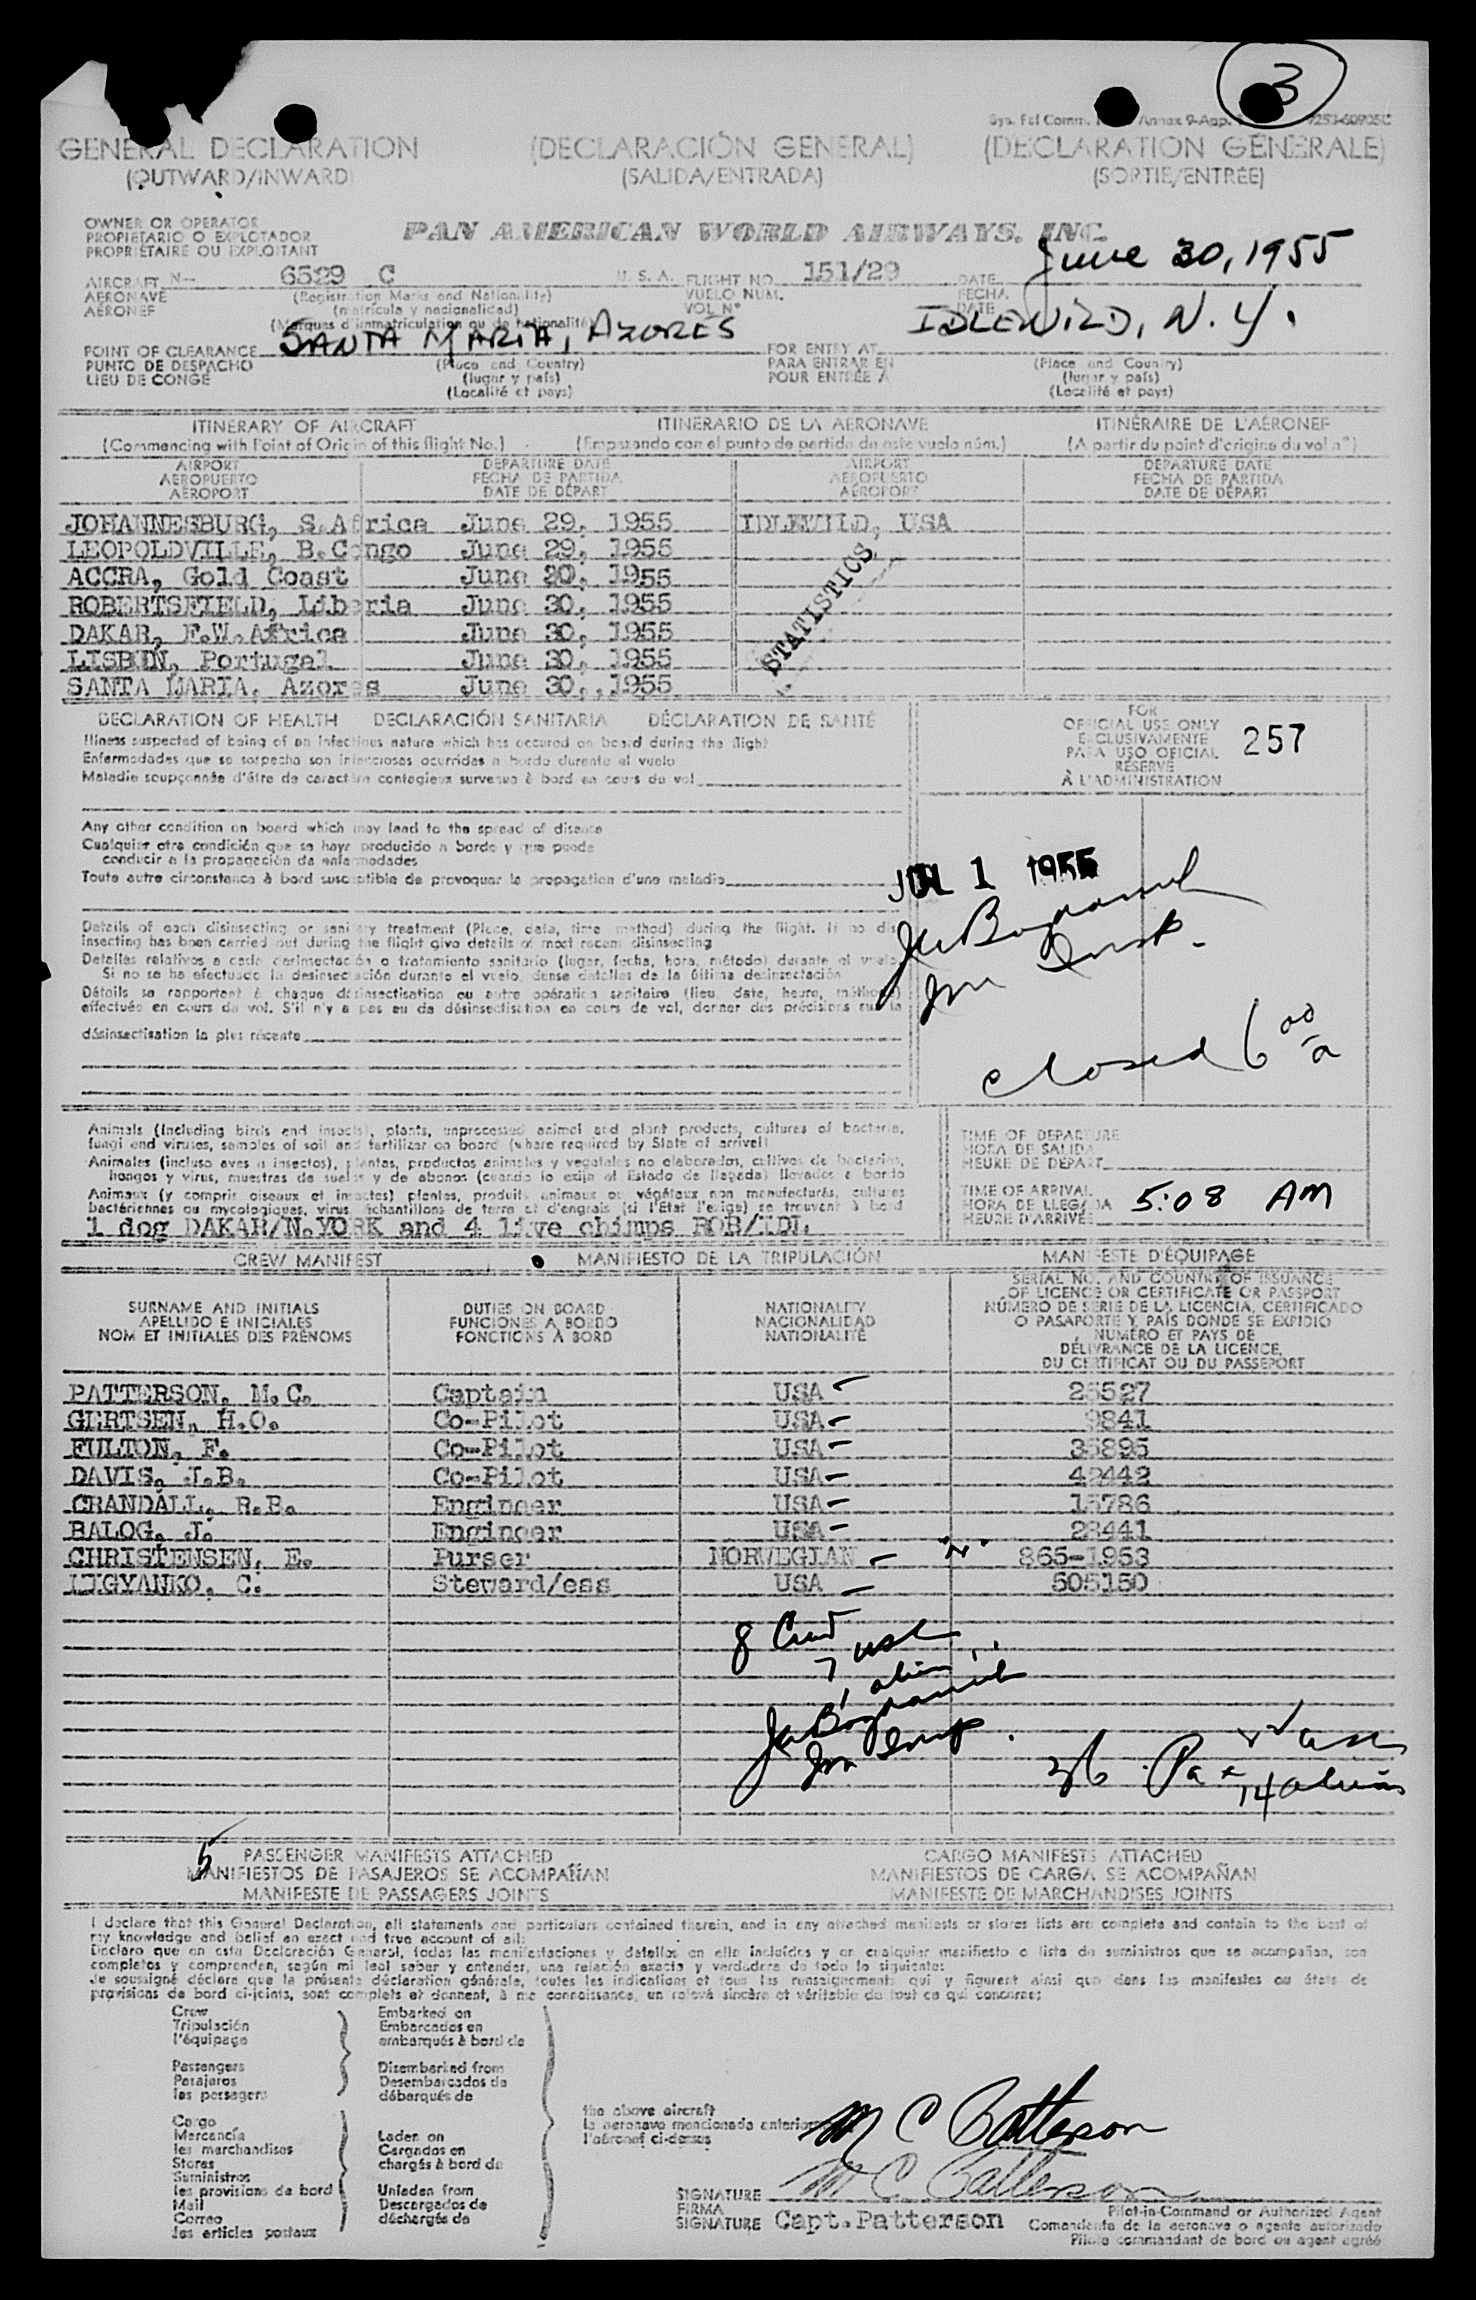 3
GENERAL DECLARATION (DECLARACIÓN GENERAL) (DECLARATION GÉNÉRALE)
(OUTWARD/INWARD) (SALIDA/ENTRADA) (SORTIE/ENTRÉE)
OWNER OR OPERATOR
PROPIETARIO O EXPLOTADOR
PROPRIÉTAIRE OU EXPLOITANT
PAN AMERICAN WORLD AIRWAYS, INC.
June 30, 1955
AIRCRAFT N- 6529 C U. S. A. FLIGHT NO. 151/29 DATE
AERONAVE (Registration Marks and Nationality) VUELO NUM. FECHA
AÉRONEF (matrícula y nacionalidad) VOL Nº DATE
(Marques d'immatriculation ou de nationalité)
SANTA MARIA, AZORES IDLEWILD, N.Y.
POINT OF CLEARANCE (Place and Country) FOR ENTRY AT (Place and Country)
PUNTO DE DESPACHO (lugar y país) PARA ENTRAR EN (lugar y país)
LIEU DE CONGÉ (Localité et pays) POUR ENTRÉE A (Localité et pays)
ITINERARY OF AIRCRAFT ITINERARIO DE LA AERONAVE ITINÉRAIRE DE L'AÉRONEF
(Commencing with Point of Origin of this flight No.) (Empezando con el punto de partida de este vuelo núm.) (A partir du point d'origine du vol nº)
AIRPORT DEPARTURE DATE AIRPORT DEPARTURE DATE
AEROPUERTO FECHA DE PARTIDA AEROPUERTO FECHA DE PARTIDA
AÉROPORT DATE DE DÉPART AÉROPORT DATE DE DÉPART
JOHANNESBURG, S.Africa June 29, 1955 IDLEWILD, USA
LEOPOLDVILLE, B.Congo June 29, 1955
ACCRA, Gold Coast June 20, 1955
ROBERTSFIELD, Liberia June 30, 1955
DAKAR, F.W.Africa June 30, 1955
LISBON, Portugal June 30, 1955
SANTA MARIA, Azores June 30,,1955
STATISTICS
DECLARATION OF HEALTH DECLARACIÓN SANITARIA DÉCLARATION DE SANTÉ
Illness suspected of being of an infectious nature which has occured on board during the flight
Enfermedades que se sospecha son infecciosas ocurridas a bordo durante el vuelo
Maladie soupçonnée d'être de caractère contagieux survenue à bord en cours du vol
FOR
OFFICIAL USE ONLY
EXCLUSIVAMENTE
PARA USO OFICIAL
RÉSERVÉ
À L'ADMINISTRATION
257
Any other condition on board which may lead to the spread of disease
Cualquier otra condición que se haya producido a bordo y que puede
conducir a la propagación de enfermedades
Toute autre circonstance à bord susceptible de provoquer la propagation d'une maladie
JUL 1 1955
Imm Insp.
closed 6 00 a
Details of each disinsecting or sanitary treatment (Place, date, time method) during the flight. If no dis-
insecting has been carried out during the flight give details of most recent disinsecting
Detalles relativos a cada desinsectación o tratamiento sanitario (lugar, fecha, hora, método) durante el vuelo
Si no se ha efectuado la desinsectación durante el vuelo, dense detalles de la última desinsectación
Détails se rapportant à chaque désinsectisation ou autre opération sanitaire (lieu, date, heure, méthode)
effectuée en cours du vol. S'il n'y a pas eu de désinsectisation en cours de vol, donner des précisions sur la
désinsectisation la plus récente
Animals (including birds and insects), plants, unprocessed animal and plant products, cultures of bacteria,
fungi and viruses, samples of soil and fertilizer on board (where required by State of arrival)
Animales (incluso aves e insectos), plantas, productos animales y vegetales no elaborados, cultivos de bacterias,
hongos y virus, muestras de suelos y de abonos (cuando lo exija el Estado de llegada) llevados a bordo
Animaux (y compris oiseaux et insectes) plantes, produits animaux ou végétaux non manufacturés, cultures
bactériennes ou mycologiques, virus, échantillons de terre et d'engrais (si l'État l'exige) se trouvent à bord
1 dog DAKAR/N.YORK and 4 live chimps ROB/IDL
TIME OF DEPARTURE
HORA DE SALIDA
HEURE DE DÉPART
TIME OF ARRIVAL
HORA DE LLEGADA
HEURE D'ARRIVÉE
5:08 AM
CREW MANIFEST MANIFIESTO DE LA TRIPULACIÓN MANIFESTE D'ÉQUIPAGE
SURNAME AND INITIALS
APELLIDO E INICIALES
NOM ET INITIALES DES PRÉNOMS
DUTIES ON BOARD
FUNCIONES A BORDO
FONCTIONS À BORD
NATIONALITY
NACIONALIDAD
NATIONALITÉ
SERIAL NO. AND COUNTRY OF ISSUANCE
OF LICENCE OR CERTIFICATE OR PASSPORT
NÚMERO DE SERIE DE LA LICENCIA, CERTIFICADO
O PASAPORTE Y PAÍS DONDE SE EXPIDIÓ
NUMÉRO ET PAYS DE
DÉLIVRANCE DE LA LICENCE,
DU CERTIFICAT OU DU PASSEPORT
PATTERSON, M.C. Captain USA 26527
GERTSEN, H.O. Co-Pilot USA 9841
FULTON, F. Co-Pilot USA
DAVIS, J.B. Co-Pilot USA
CRANDALL, R.B. Engineer USA
BALOG, J. Engineer USA
CHRISTENSEN, E. Purser NORWEGIAN 865-1953
LIGVANKO, C. Steward/ess USA 505150
8 Crew
7 USC
1 alien
Imm Insp.
36 Pax
14 aliens
5 PASSENGER MANIFESTS ATTACHED CARGO MANIFESTS ATTACHED
MANIFIESTOS DE PASAJEROS SE ACOMPAÑAN MANIFIESTOS DE CARGA SE ACOMPAÑAN
MANIFESTE DE PASSAGERS JOINTS MANIFESTE DE MARCHANDISES JOINTS
I declare that this General Declaration, all statements and particulars contained therein, and in any attached manifests or stores lists are complete and contain to the best of
my knowledge and belief an exact and true account of all:
Declaro que en esta Declaración General, todas las manifestaciones y detalles en ella incluídos y en cualquier manifiesto o lista de suministros que se acompañan, son
completos y comprenden, según mi leal saber y entender, una relación exacta y verdadera de todo lo siguiente:
Je soussigné déclare que la présente déclaration générale, toutes les indications et tous les renseignements qui y figurent ainsi que dans les manifestes ou états de
provisions de bord ci-joints, sont complets et donnent, à ma connaissance, un relevé sincère et véritable de tout ce qui concerne:
Crew Embarked on
Tripulación Embarcados en
l'équipage embarqués à bord de
Passengers Disembarked from
Pasajeros Desembarcados de
les passagers débarqués de
Cargo
Mercancía Laden on
les marchandises Cargados en
Stores chargés à bord de
Suministros
les provisions de bord Unladen from
Mail Descargados de
Correo déchargés de
les articles postaux
the above aircraft
la aeronave mencionada anteriormente
l'aéronef ci-dessus
M C Patterson
M C Patterson
SIGNATURE
FIRMA
SIGNATURE
Capt.Patterson
Pilot-in-Command or Authorized Agent
Comandante de la aeronave o agente autorizado
Pilote commandant de bord ou agent agréé